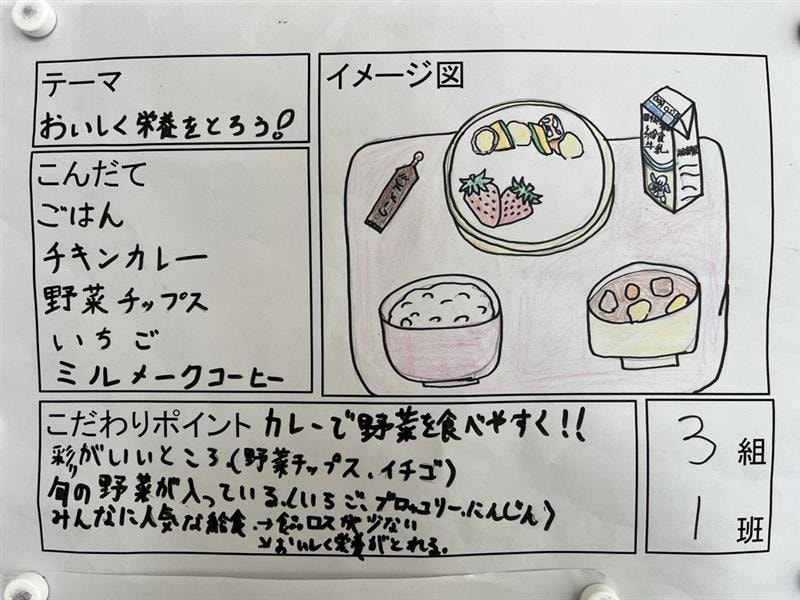 テーマ
おいしく栄養をとろう!
こんだて
ごはん
チキンカレー
野菜チップス
いちご
ミルメークコーヒー
イメージ図
ミルメーク
給食
牛乳
こだわりポイント カレーで野菜を食べやすく!!
彩りがいいところ。(野菜チップス、イチゴ)
旬の野菜が入っている。(いちご、ブロッコリー、にんじん)
みんなに人気な給食。→食品ロスが少ない
↘おいしく栄養がとれる。
3組
1班